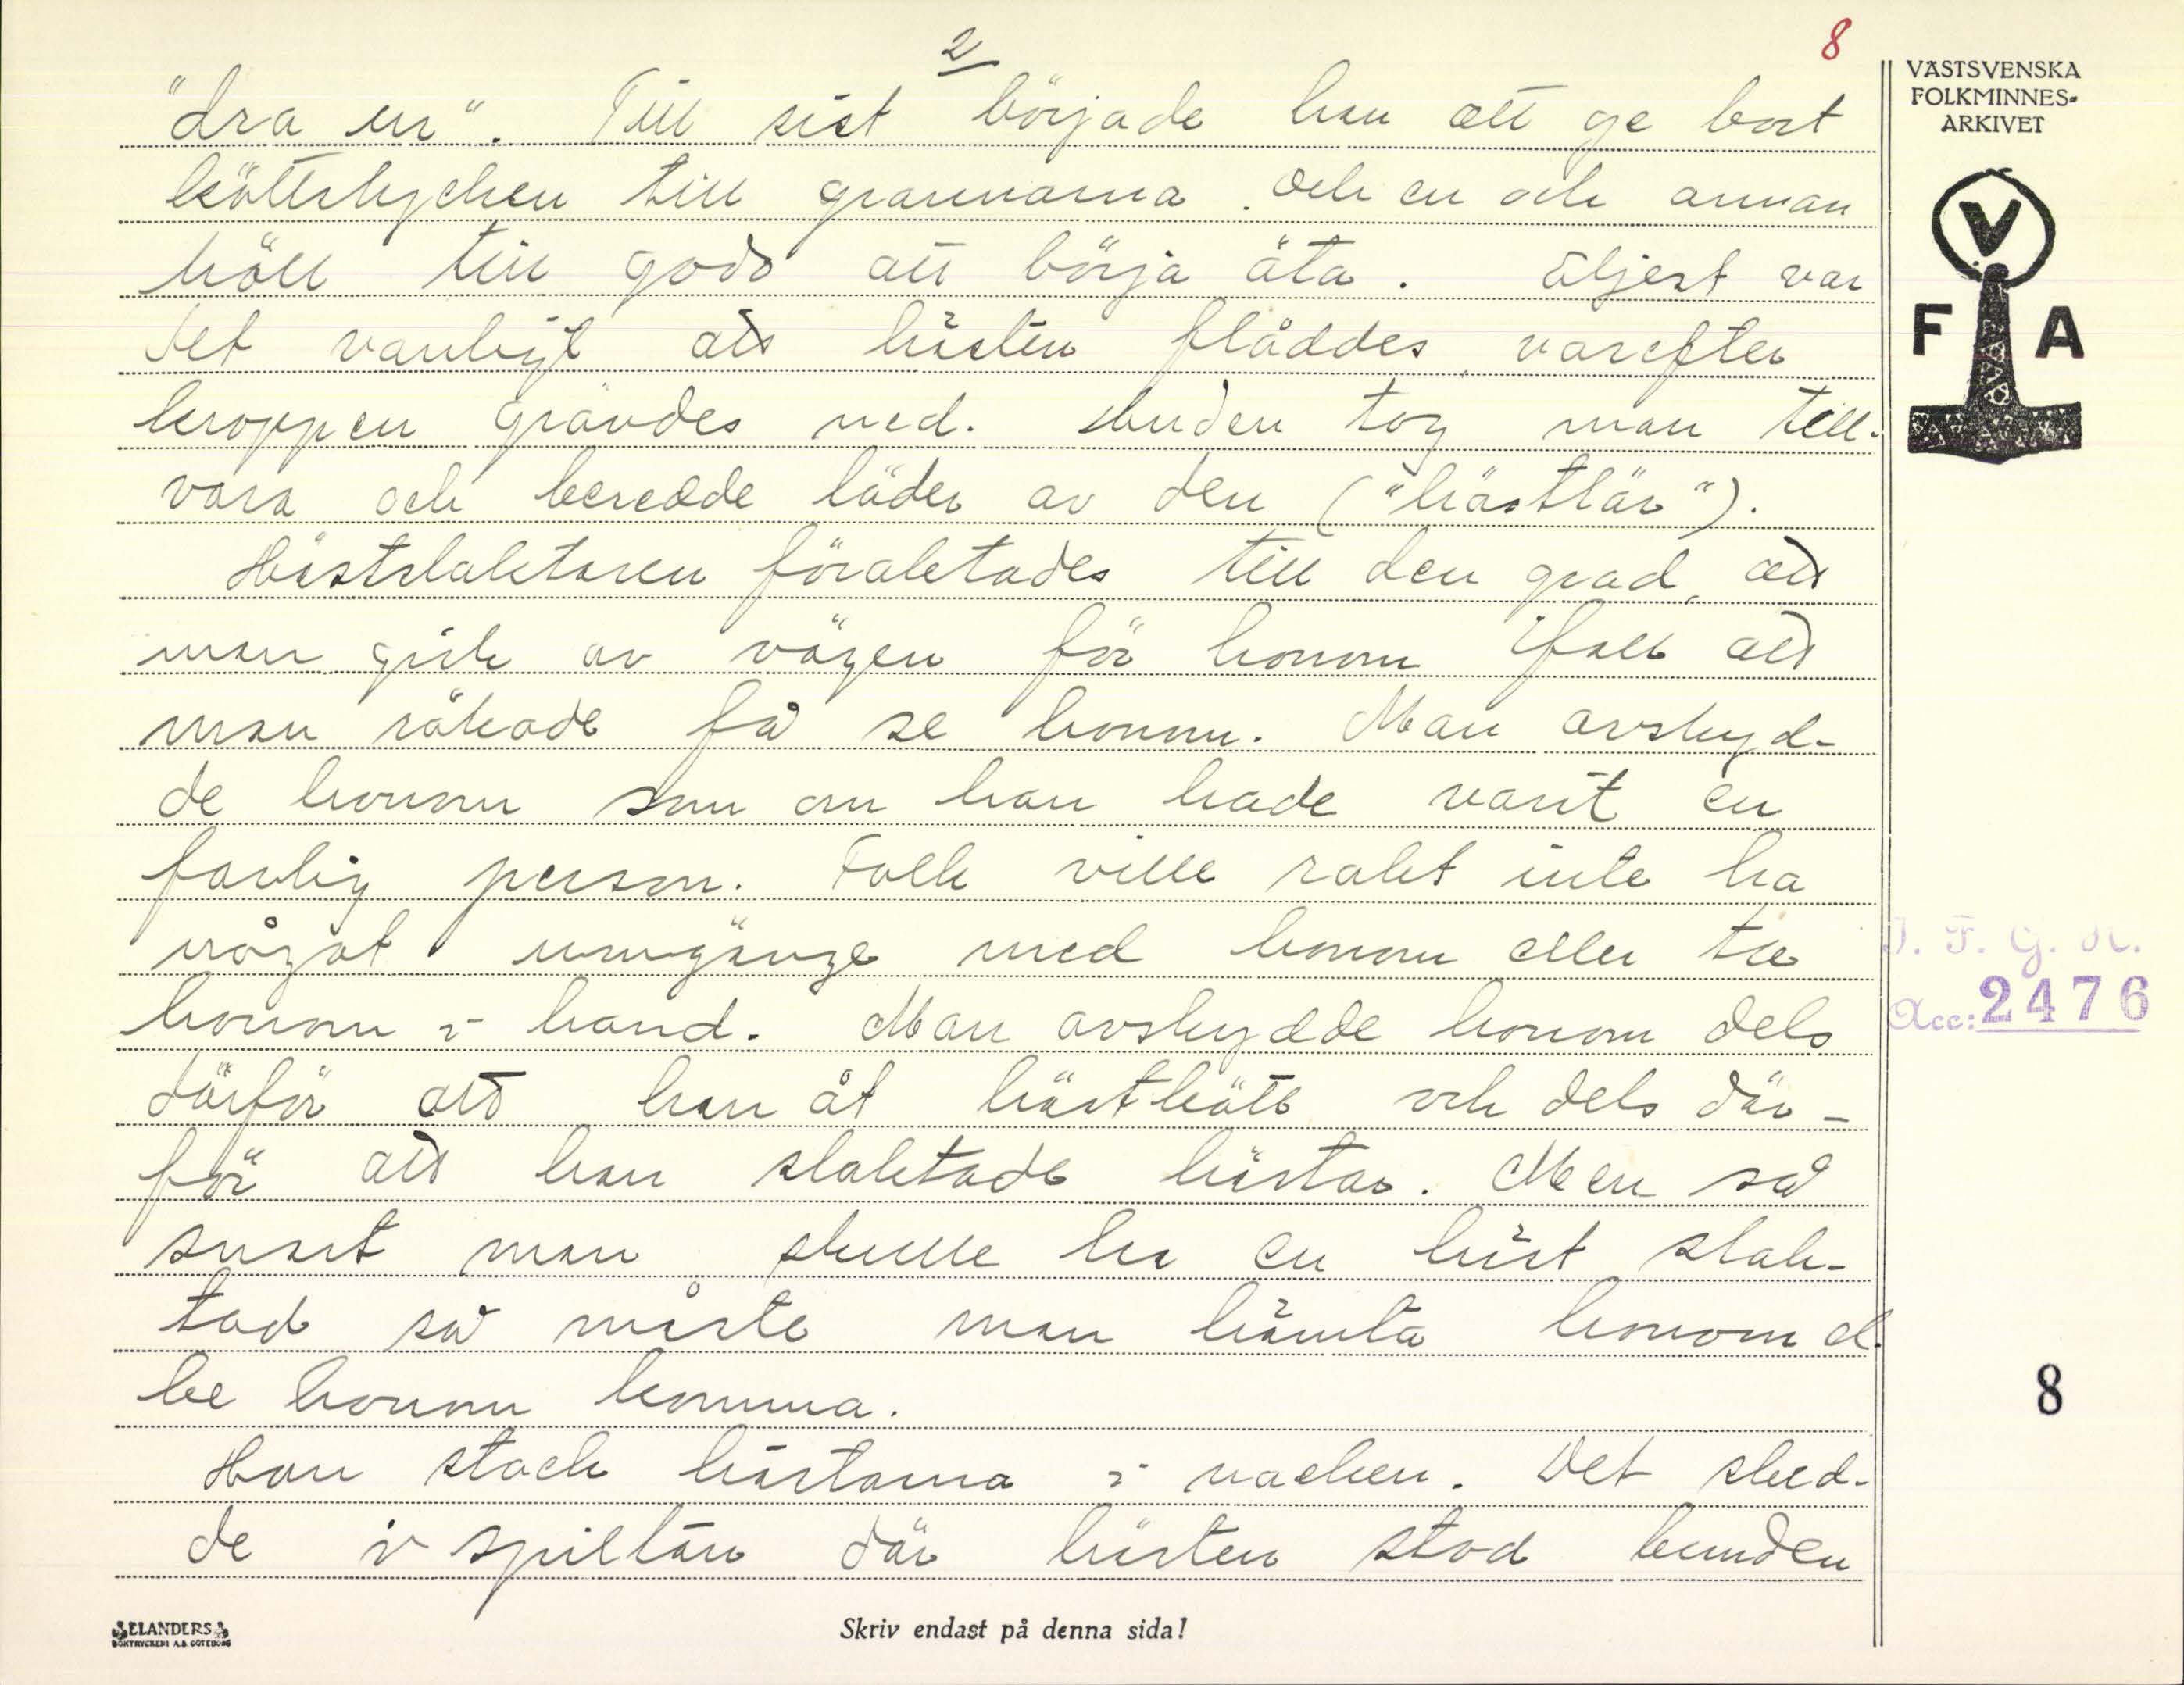 2
8
"dra en". Till sist började han att ge bort
köttstycken till grannarna. Och en och annan
höll till godo att börja äta. Eljest var
det vanligt att hästen flåddes, varefter
kroppen grävdes ned. Huden tog man till-
vara och beredde läder av den ("hästlär").
Hästslaktaren föraktades till den grad, att
man gick av vägen för honom ifall att
man råkade få se honom. Man avskyd-
de honom som om han hade varit en
farlig person. Folk ville rakt inte ha
något umgänge med honom eller ta
honom i hand. Man avskydde honom dels
därför att han åt hästkött och dels där-
för att han slaktade hästar. Men så
snart man skulle ha en häst slak-
tad så måste man hämta honom el.
be honom komma.
Han stack hästarna i nacken. Det sked-
de i spiltan där hästen stod bunden
VÄSTSVENSKA
FOLKMINNES-
ARKIVET
V
F A
I. F. G. H.
Acc: 2476
8
ELANDERS
BOKTRYCKERI A.B. GÖTEBORG
Skriv endast på denna sida!